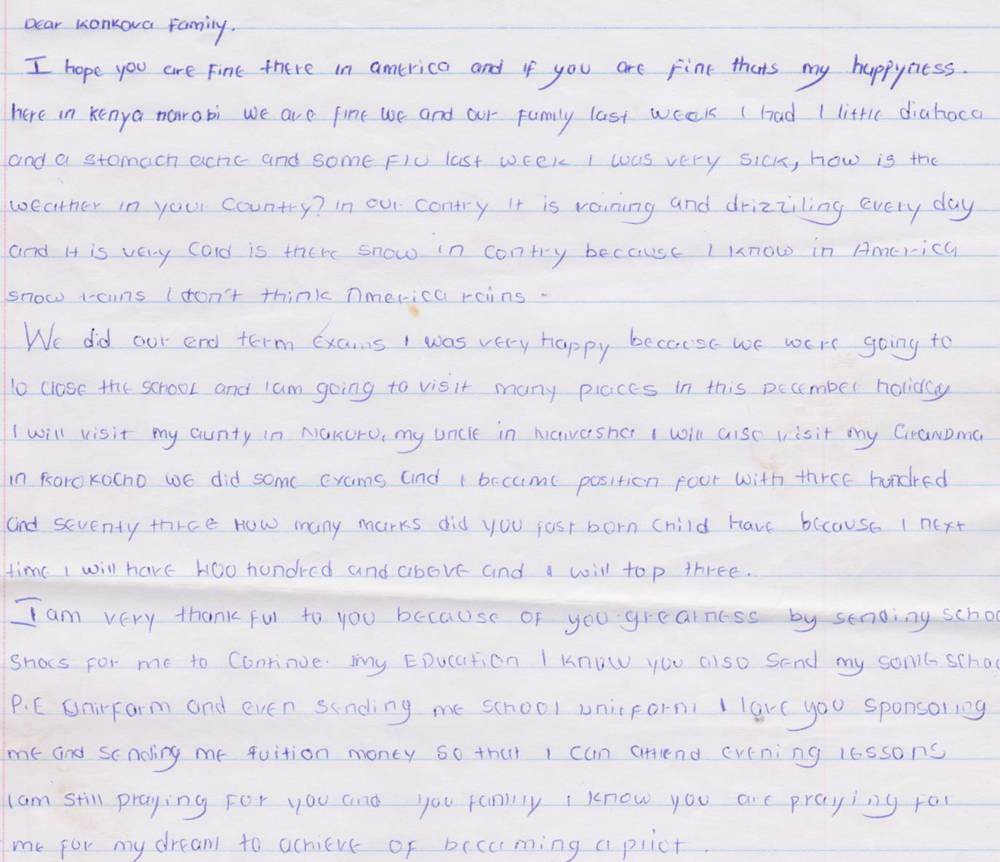 Dear Konkova Family.
I hope you are fine there in america and if you are fine thats my happyness.
here in kenya nairobi we are fine we and our family last week I had I little diahoea
and a stomach ache and some FIU last week I was very sick, how is the
weather in your country? in our contry it is raining and drizziling every day
and it is very cold is there snow in contry because I know in America
snow rains I don't think America rains -
We did our end term exams I was very happy because we were going to
to close the school and I am going to visit many places in this December holiday
I will visit my aunty in Nakuru, my uncle in Naivasha I will also visit my GRANDMA
in Korokocho we did some exams and I became position four with three hundred
and seventy three How many marks did you fast born child have because I next
time I will have 400 hundred and above and I will top three.
I am very thankful to you because of you greatness by sending schoo
shoes for me to continue my Education I know you also send my some schoo
P.E uniform and even sending me school uniform I love you sponsoring
me and sending me tuition money so that I can attend evening lessons
I am still praying for you and you family I know you are praying for
me for my dream to achieve of becoming a pilot.